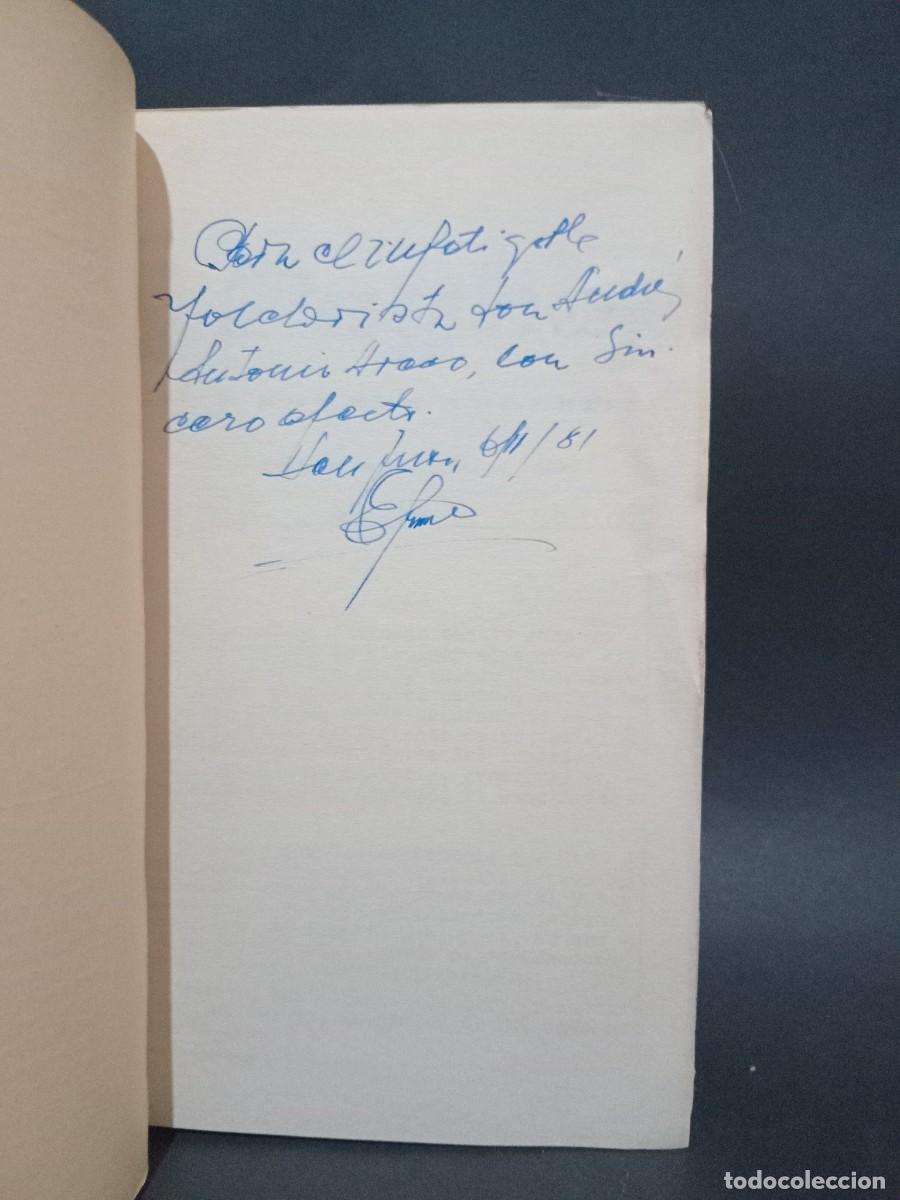 Para el infatigable
folclorista don Andrés
Antonio Arcao, con sin-
cero afecto.
San Juan, 6/11/81
todocoleccion